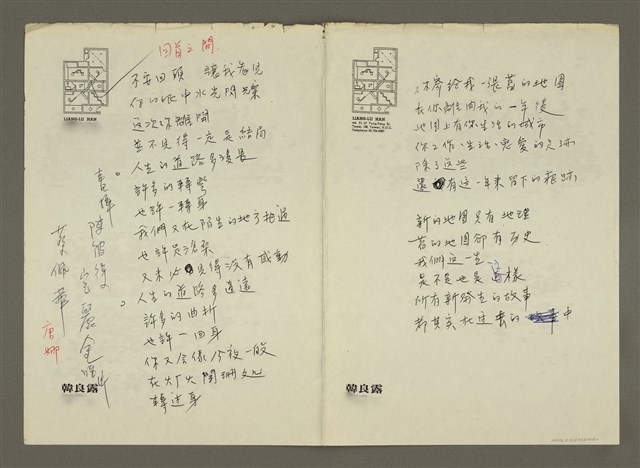 回首之間
不要回頭 讓我看見
你的眼中水光閃爍
這次你離開
並不見得一定是結局
人生的道路多漫長
許多的轉彎
也許一轉身
我們又在陌生的地方相遇
也許是滄桑
又未必見得沒有感動
人生的道路多遙遠
許多的曲折
也許一回身
你又会像今夜一般
在灯火闌珊处
轉过身
LIANG-LU HAN
韓良露
蔡佩華
唐娜
LIANG-LU HAN
你寄給我一張舊的地圖
在你離開我的一年後
地圖上有你生活的城市
你工作、生活、戀愛的足跡
除了這些
還有这一年來留下的痕跡
新的地圖只有地理
舊的地圖卻有历史
我們這一生
是不是也是這樣
所有新發生的故事
都其實在过去的中
韓良露